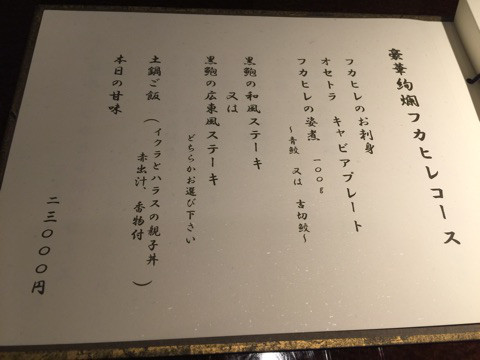 豪華絢爛フカヒレコース
フカヒレのお刺身
オセトラ キャビアプレート
フカヒレの姿煮 一〇〇g
～青鮫 又は 吉切鮫～
黒鮑の和風ステーキ
又は
黒鮑の広東風ステーキ
どちらかお選び下さい
土鍋ご飯 （イクラとハラスの親子丼）
赤出汁、香物付
本日の甘味
二三〇〇〇円